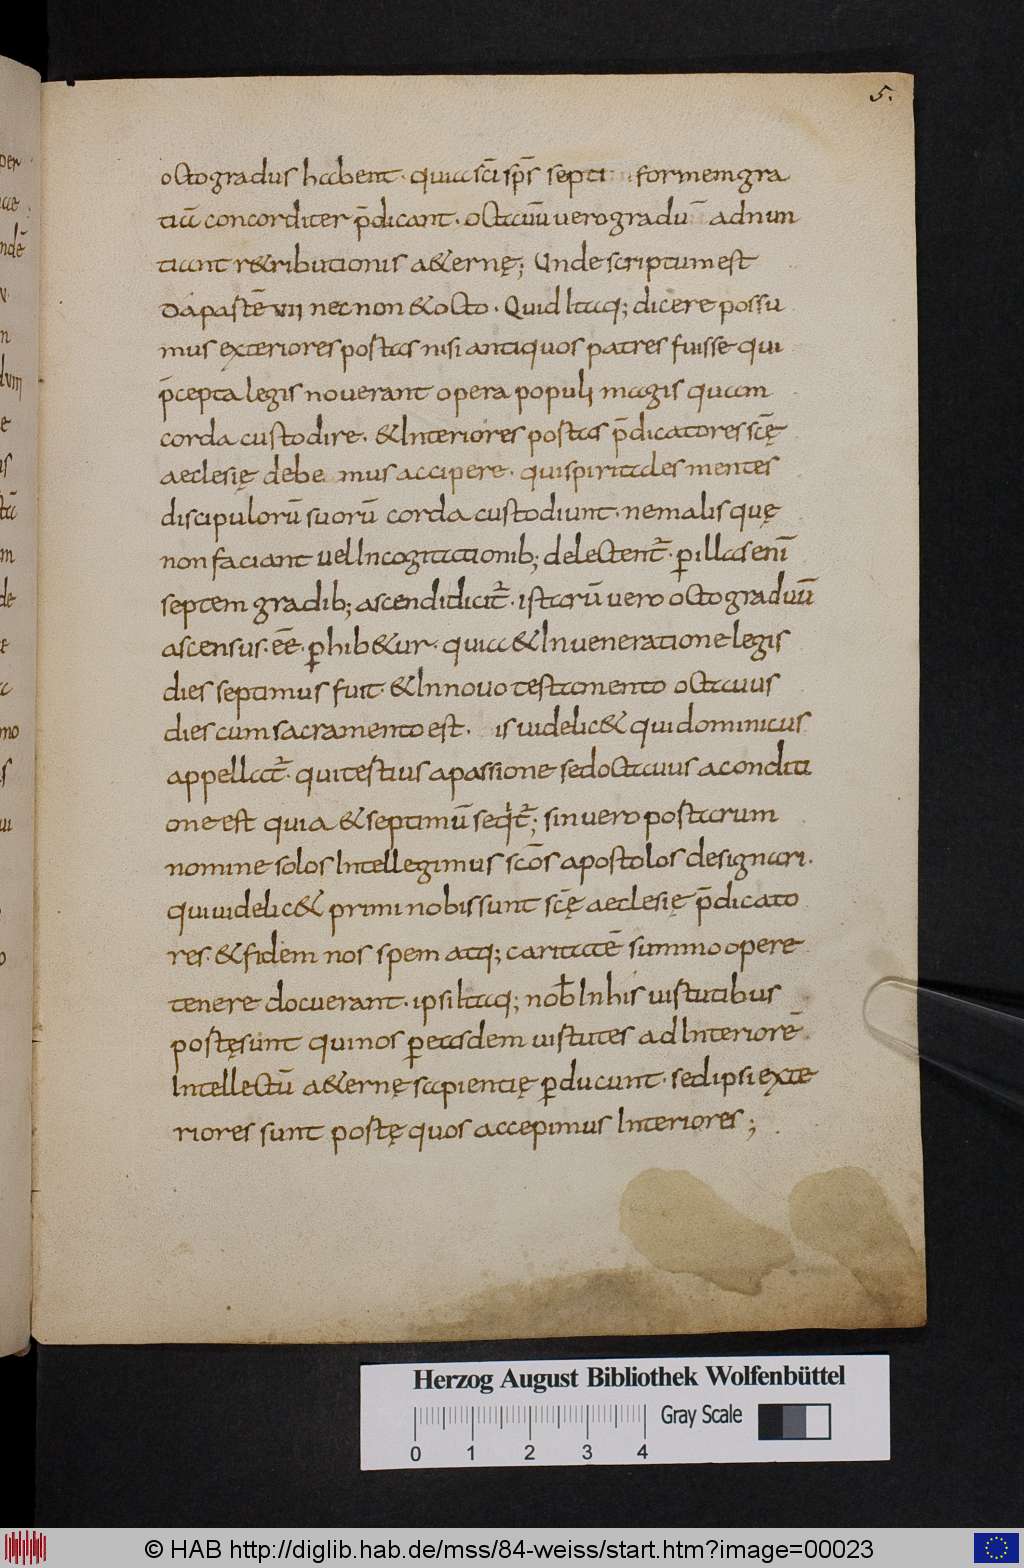 5.
octo gradus habent · quia sc̄i sp̄s septi formem gra
tiā concorditer p̄dicant · octauū uero gradū adnun
tiant r&ributionis a&ernę; Unde scriptum est
Da partē VII nec non & octo · Quid Itaq; dicere possu
mus exteriores portas nisi antiquos patres fuisse qui
p̄cepta legis nouerant opera populi magis quam
corda custodire · & Interiores portas p̄dicatores sc̄ę
aeclesię debe mus accipere · qui spiritales mentes
discipulorū suorū corda custodiunt · ne malis quę
non faciant uel In cogitationib; delectent̄ · p illas enī
septem gradib; ascendi dicit̄ · istarū uero octo graduū
ascensus · ēē · phib&ur · quia & In ueneratione legis
dies septimus fuit · & In nouo testamento octauus
dies cum sacramento est · is uidelic& qui dominicus
appellat̄ · qui tertius a passione sed octauus a conditi
one est quia & septimū seqit̄; sin uero portarum
nomine solos Intellegimus sc̄os apostolos designari ·
qui uidelic& primi nobis sunt sc̄ę aeclesię p̄dicato
res · & fidem nos spem atq; caritatē summo opere
tenere docuerant · ipsi Itaq; nob̄ In his uirtutibus
portę sunt qui nos p easdem uirtutes ad Interiorē
Intellectū a&ernę sapientię pducunt · sed ipsi exte
riores sunt portę quos accepimus Interiores ;
Herzog August Bibliothek Wolfenbüttel
Gray Scale
0 1 2 3 4
© HAB http://diglib.hab.de/mss/84-weiss/start.htm?image=00023